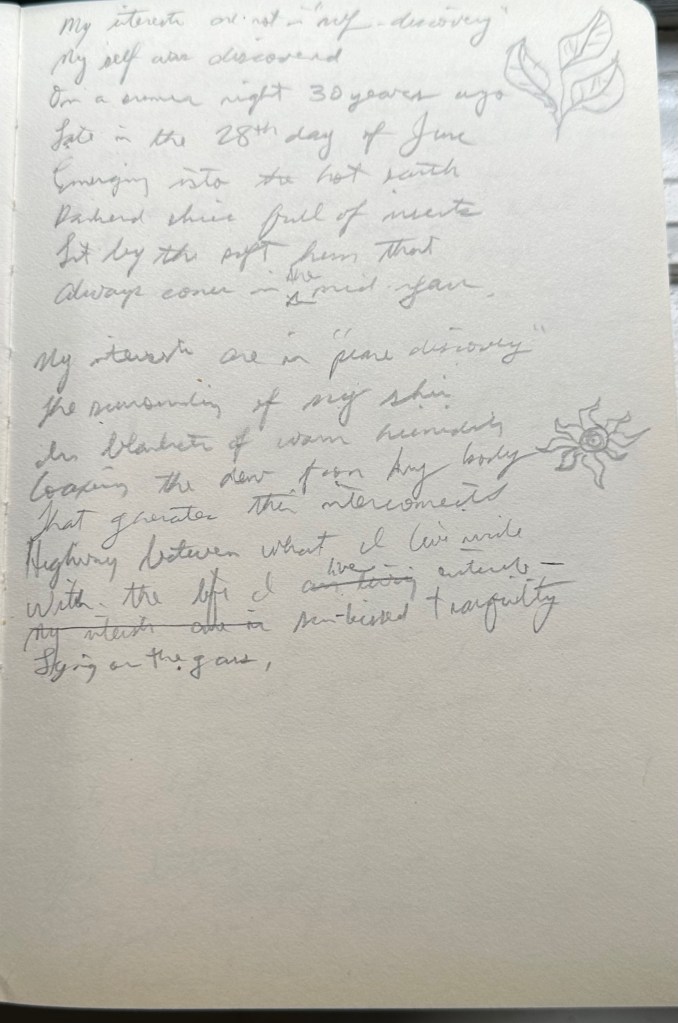 My interests are not in "self-discovery"
My self was discovered
On a summer night 30 years ago
Late in the 28th day of June
Emerging into the hot earth
full of insects
Lit by the soft hum that
Always comes in the mid year.
My interests are in "peace discovery"
The surrounding of my skin
In blankets of warm humidity
Coaxing the dew from my body
That generates this interconnected
Highway between what I live inside
With the life I live outside –
My interests are in sun-kissed tranquility
Lying on the grass,